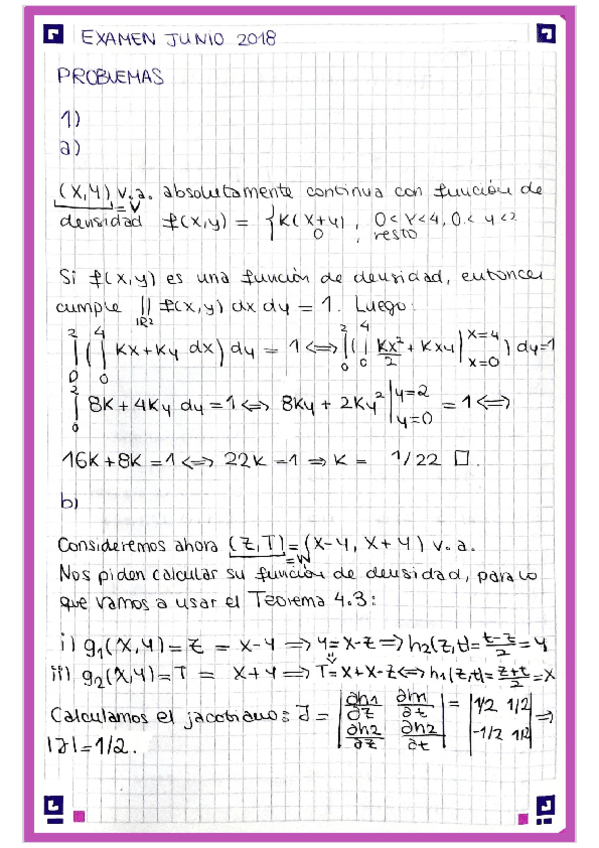 EXAMEN JUNIO 2018
PROBLEMAS
1)
a)
(X,Y) v.a. absolutamente continua con función de
= V
densidad f(x,y) = { K(x+y), 0<x<4, 0<y<2
0, resto
Si f(x,y) es una función de densidad, entonces
cumple ∬_{IR²} f(x,y) dx dy = 1. Luego:
∫_0^2 (∫_0^4 Kx+Ky dx) dy = 1 <=> ∫_0^2 (∫_0^4 Kx²/2 + Kxy |_{x=0}^{x=4}) dy=1
∫_0^2 8K+4Ky dy = 1 <=> 8Ky + 2Ky² |_{y=0}^{y=2} = 1 <=>
16K+8K=1 <=> 22K=1 => K = 1/22 □.
b)
Consideremos ahora (Z,T) = (X-Y, X+Y) v.a.
= W
Nos piden calcular su función de densidad, para lo
que vamos a usar el Teorema 4.3:
i) g₁(X,Y) = Z = X-Y => Y = X-Z => h₂(z,t) = t-z/2 = Y
ii) g₂(X,Y) = T = X+Y => T = X+X-Z <=> h₁(z,t) = z+t/2 = X
Calculamos el jacobiano: J = | ∂h1/∂z ∂h1/∂t | = | 1/2 1/2 | =>
| ∂h2/∂z ∂h2/∂t | | -1/2 1/2 |
|J| = 1/2.